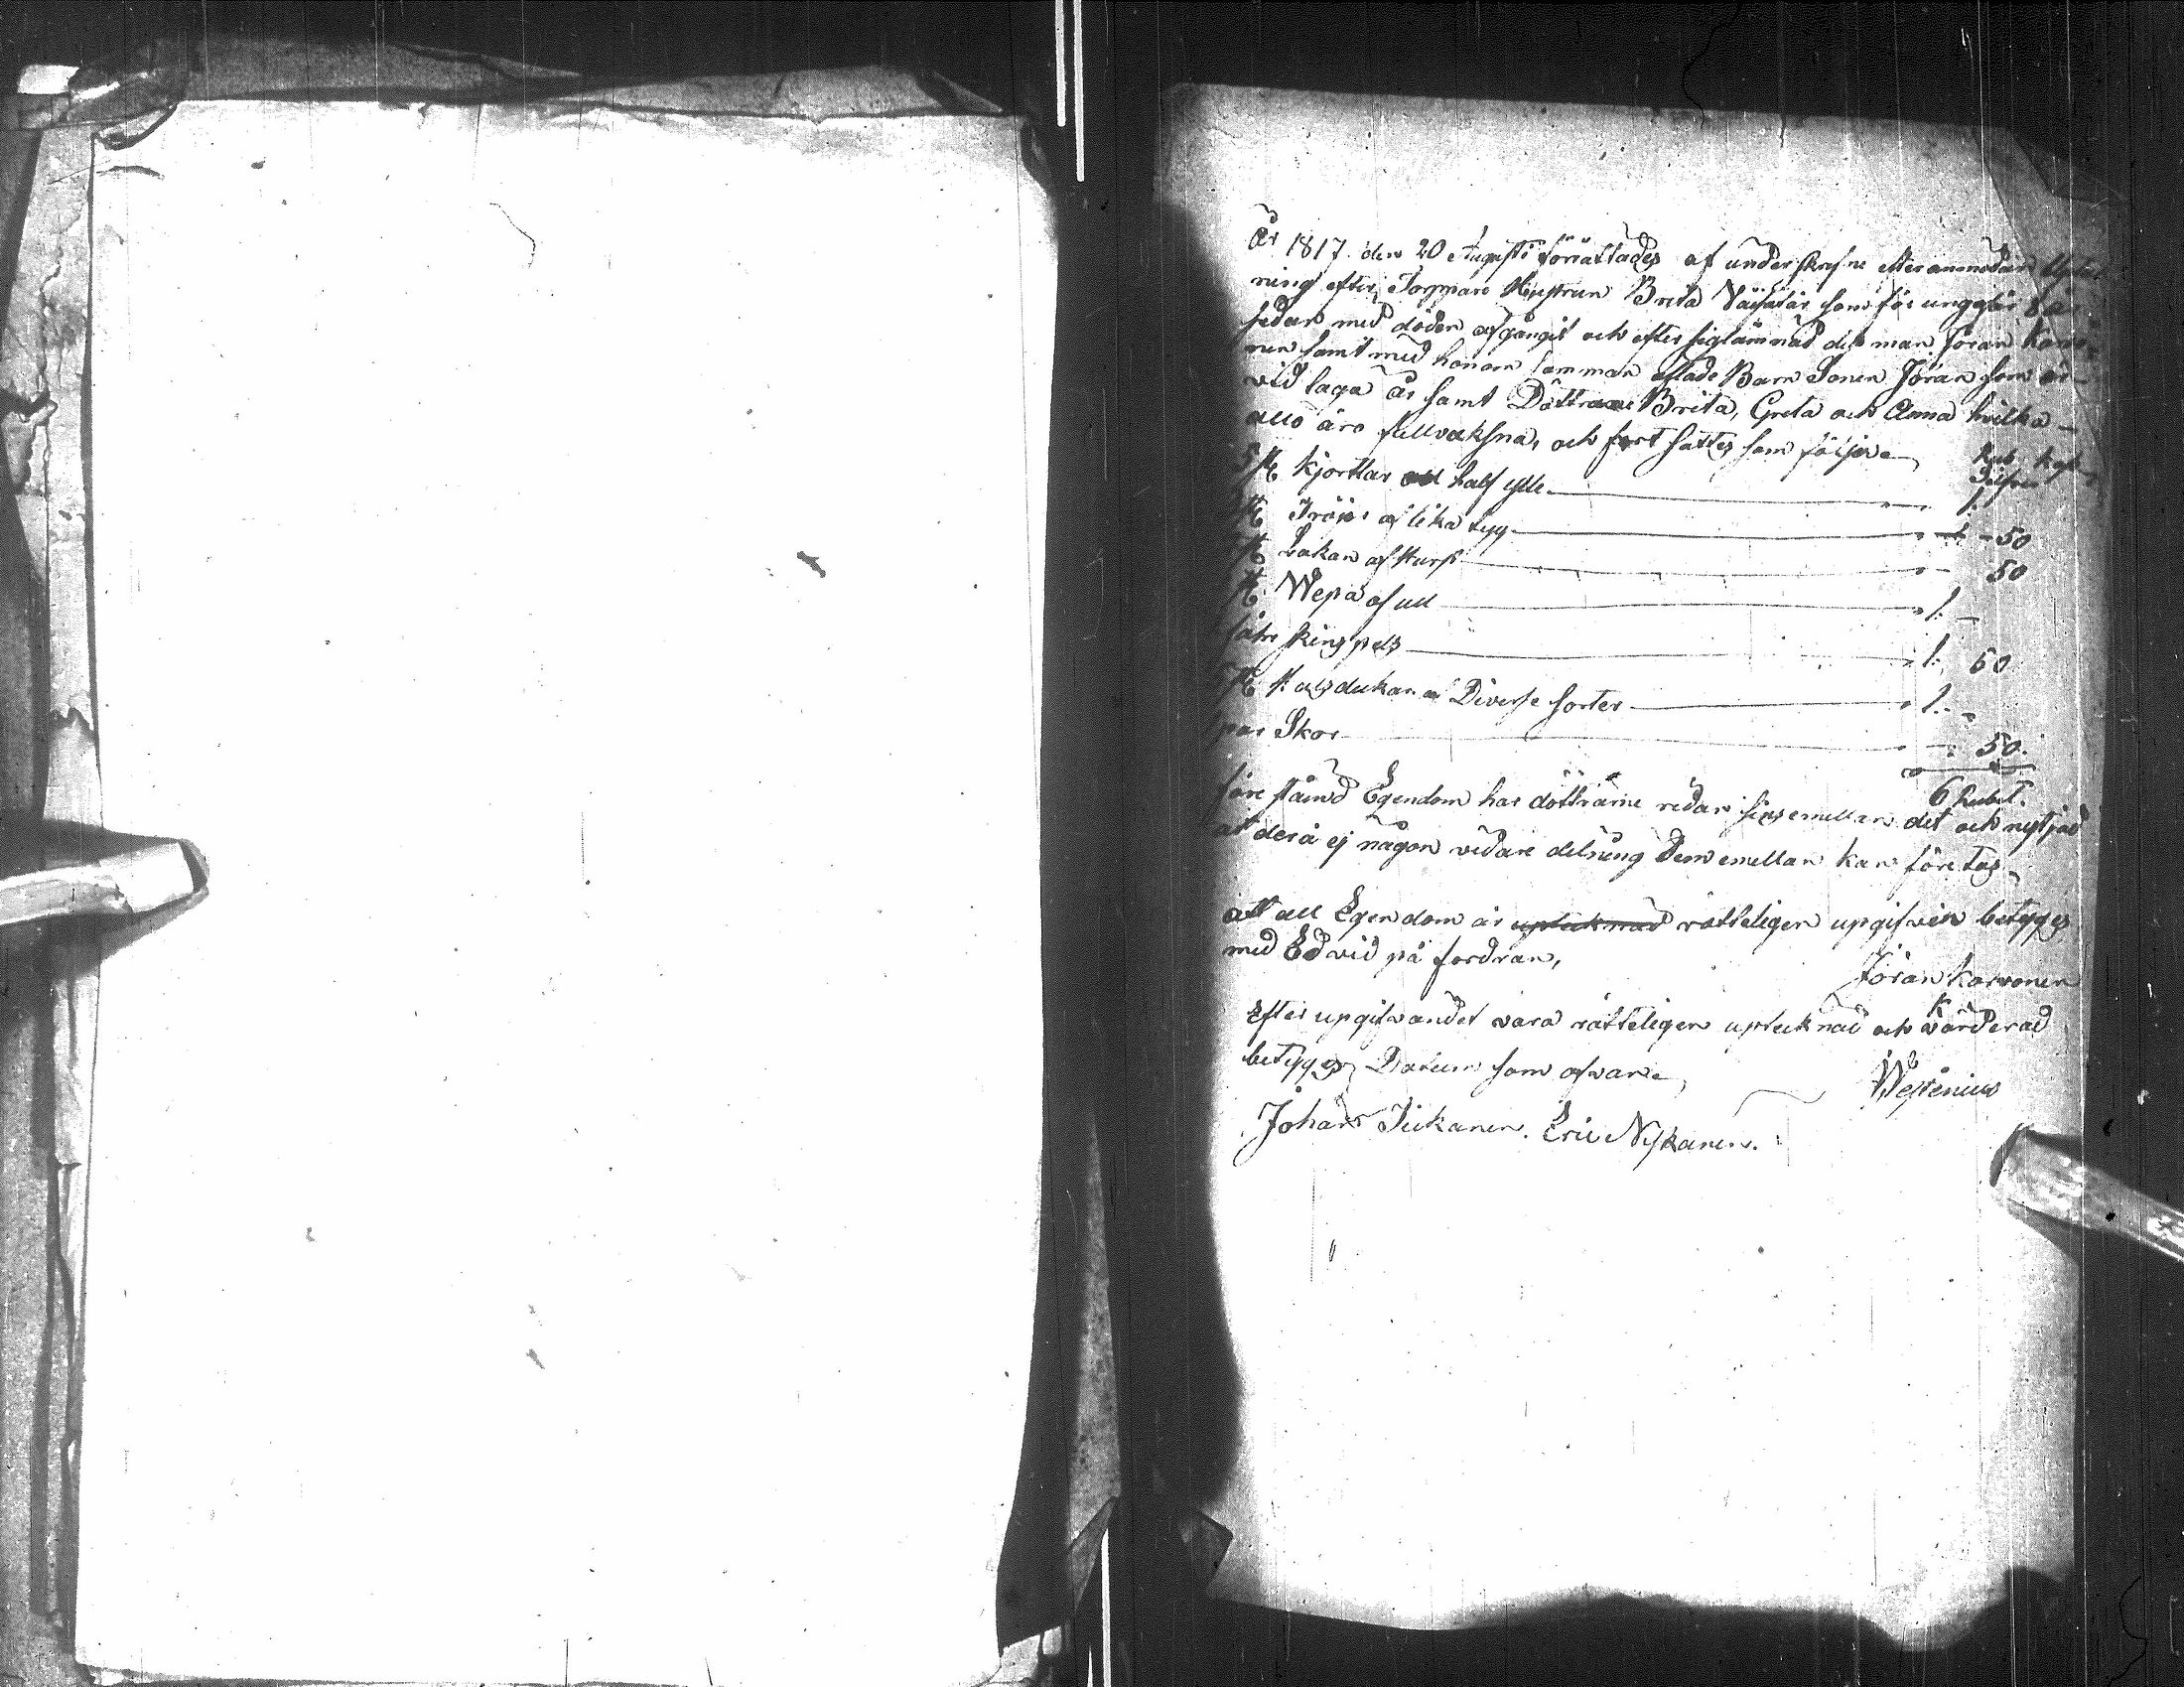 År 1817 den 20 Augusti förrättades af underskrefne efter anmodan
ning efter Torppare Hustrun Brita Väisätär som för ungefär
sedan med döden afgångit och efter sig lämnad dess man Jöran
nen samt med honom samman aflade Barn Sonen Jöran som är
vid laga år samt Döttrarne Brita, Greta och Anna hvilka
alla äro fullvaksna, och fort sattes som följer
Rub. Kop
Silfver
St kjortlar half ylle 1.
St Tröja af lika tyg 50
St Lakan af Hurst 50
St Wepa af ull 1. -
får skins pels 1. 50
St Halsdukar af Diverse sorter 1. -
par Skor 50.
6 Rubel.
före stånd Egendom har döttrarne redan sins emellan delt och nytjad
att derå ej någon vidare delning Dem emellan kan företas
att all Egendom är uptecknad rätteligen upgifven betyges
med Ed vid på fordran,
Jöran Karvonen
K
Efter upgifvandet vara rätteligen uptecknad och värderad
betyges Datum som ofvan
Westenius
Johan Tickanen. Eric Nykanen.